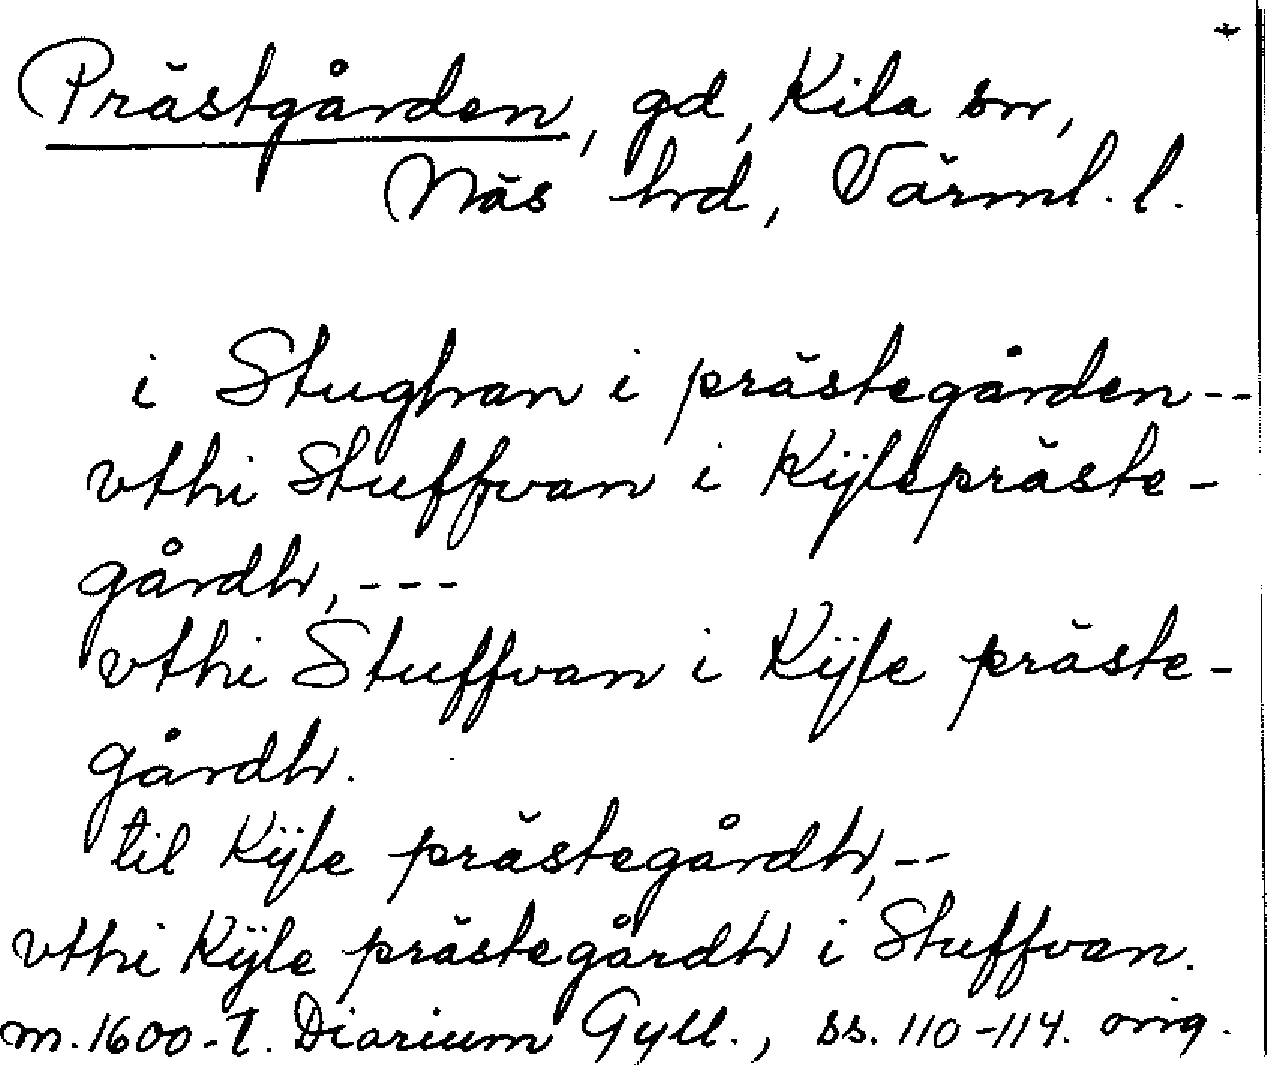 Prästgården, gd, Kila sn,
Näs hd, Värml. l.
i Stughan i prästegården--
vthi Stuffvan i Kÿlepräste-
gårdh, ---
vthi Stuffvan i Kÿle präste-
gårdh.
til Kÿle prästegårdh,--
vthi Kÿle prästegårdh i Stuffvan.
m. 1600-t. Diarium Gyll., ss. 110-114. orig.